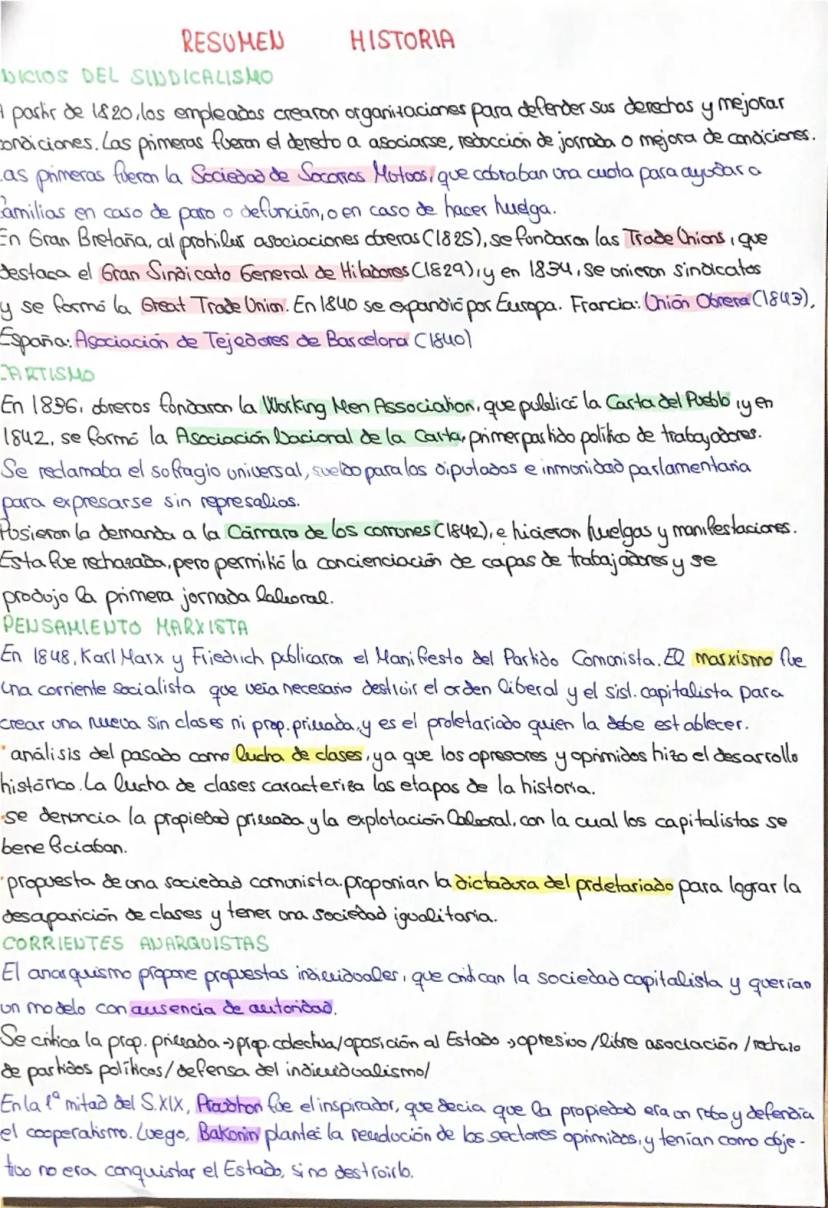 RESUMEN HISTORIA
NICIOS DEL SINDICALISMO
A partir de 1820, los empleados crearon organizaciones para defender sus derechos y mejorar
condiciones. Las primeras fueron el dereto a asociarse, reducción de jornada o mejora de condiciones.
as primeras fueron la Sociedad de Socorros Mutuos, que cobraban una cuota para ayudar a
familias en caso de paro o defunción, o en caso de hacer huelga.
En Gran Bretaña, al prohibir asociaciones obreras (1825), se fundaron las Trade Unions, que
destaca el Gran Sindicato General de Hiladores (1829), y en 1834, se unieron sindicatos
y se formó la Great Trade Union. En 1840 se expandió por Europa. Francia: Unión Obrera (1843),
España: Asociación de Tejedores de Barcelona (1840)
CARTISMO
En 1836, obreros fundaron la Working Men Association, que publicó la Carta del Pueblo, y en
1842, se formó la Asociación Nacional de la Carta, primer partido político de trabajadores.
Se reclamaba el sufragio universal, sueldo para los diputados e inmunidad parlamentaria
para expresarse sin represalias.
Pusieron la demanda a la Cámara de los comunes (1842), e hicieron huelgas y manifestaciones.
Esta fue rechazada, pero permitió la concienciación de capas de trabajadores y se
produjo la primera jornada laboral.
PENSAMIENTO MARXISTA
En 1848, Karl Marx y Friedrich publicaron el Manifiesto del Partido Comunista. El marxismo fue
una corriente socialista que veía necesario destruir el orden liberal y el sist. capitalista para
crear una nueva sin clases ni prop. privada, y es el proletariado quien la debe establecer.
· análisis del pasado como lucha de clases, ya que los opresores y oprimidos hizo el desarrollo
histórico. La lucha de clases caracteriza las etapas de la historia.
· se denuncia la propiedad privada y la explotación laboral, con la cual los capitalistas se
beneficiaban.
· propuesta de una sociedad comunista. proponían la dictadura del proletariado para lograr la
desaparición de clases y tener una sociedad igualitaria.
CORRIENTES ANARQUISTAS
El anarquismo propone propuestas individuales, que critican la sociedad capitalista y querían
un modelo con ausencia de autoridad.
Se critica la prop. privada → prop. colectiva / oposición al Estado → opresivo / libre asociación / rechazo
de partidos políticos / defensa del individualismo /
En la 1ª mitad del S.XIX, Proudhon fue el inspirador, que decía que la propiedad era un robo y defendía
el cooperatismo. Luego, Bakunin planteó la revolución de los sectores oprimidos, y tenían como obje-
tivo no era conquistar el Estado, sino destruirlo.